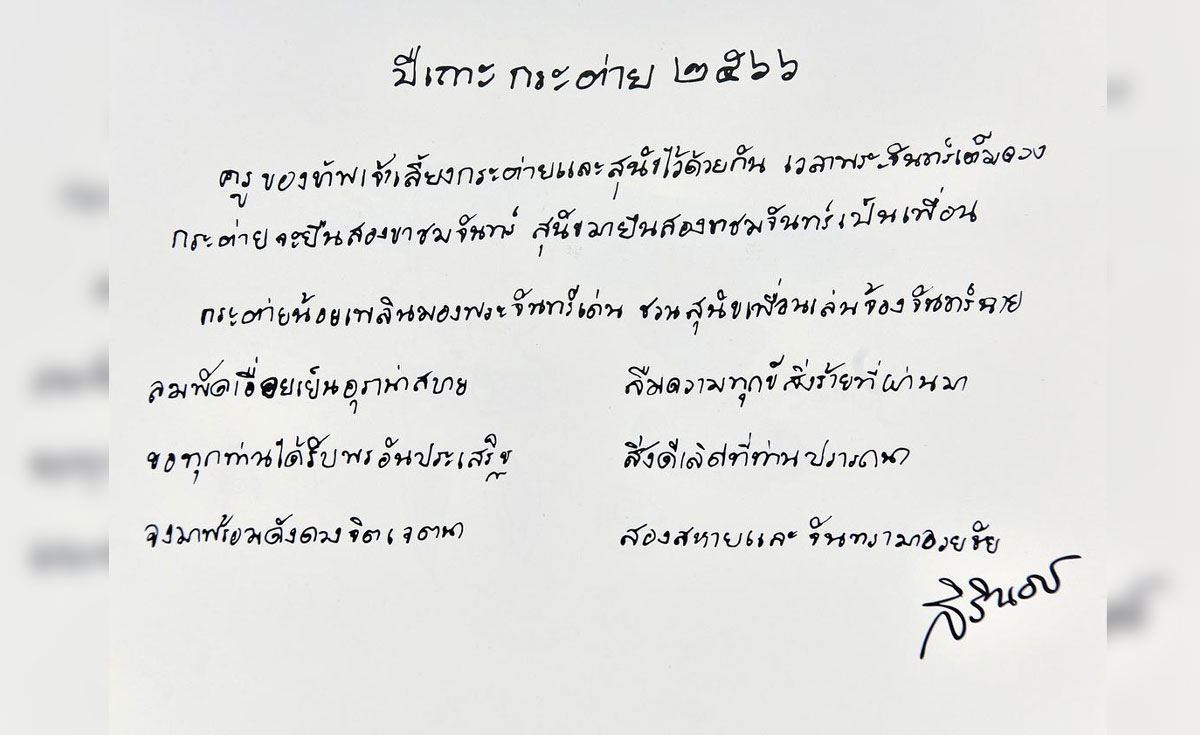 ปีเถาะ กระต่าย ๒๕๖๖
ครูของข้าพเจ้าเลี้ยงกระต่ายและสุนัขไว้ด้วยกัน เวลาพระจันทร์เต็มดวง
กระต่ายจะยืนสองขาชมจันทร์ สุนัขมายืนสองขาชมจันทร์เป็นเพื่อน
กระต่ายน้อยเพลินมองพระจันทร์เด่น ชวนสุนัขเพื่อนเล่นจ้องจันทร์ฉาย
ลมพัดเอื่อยเย็นอุราน่าสบาย ลืมความทุกข์สิ่งร้ายที่ผ่านมา
ขอทุกท่านได้รับพรอันประเสริฐ สิ่งดีเลิศที่ท่านปรารถนา
จงมาพร้อมดังดวงจิตเจตนา สองสหายและจันทรามาอวยชัย
สิรินธร